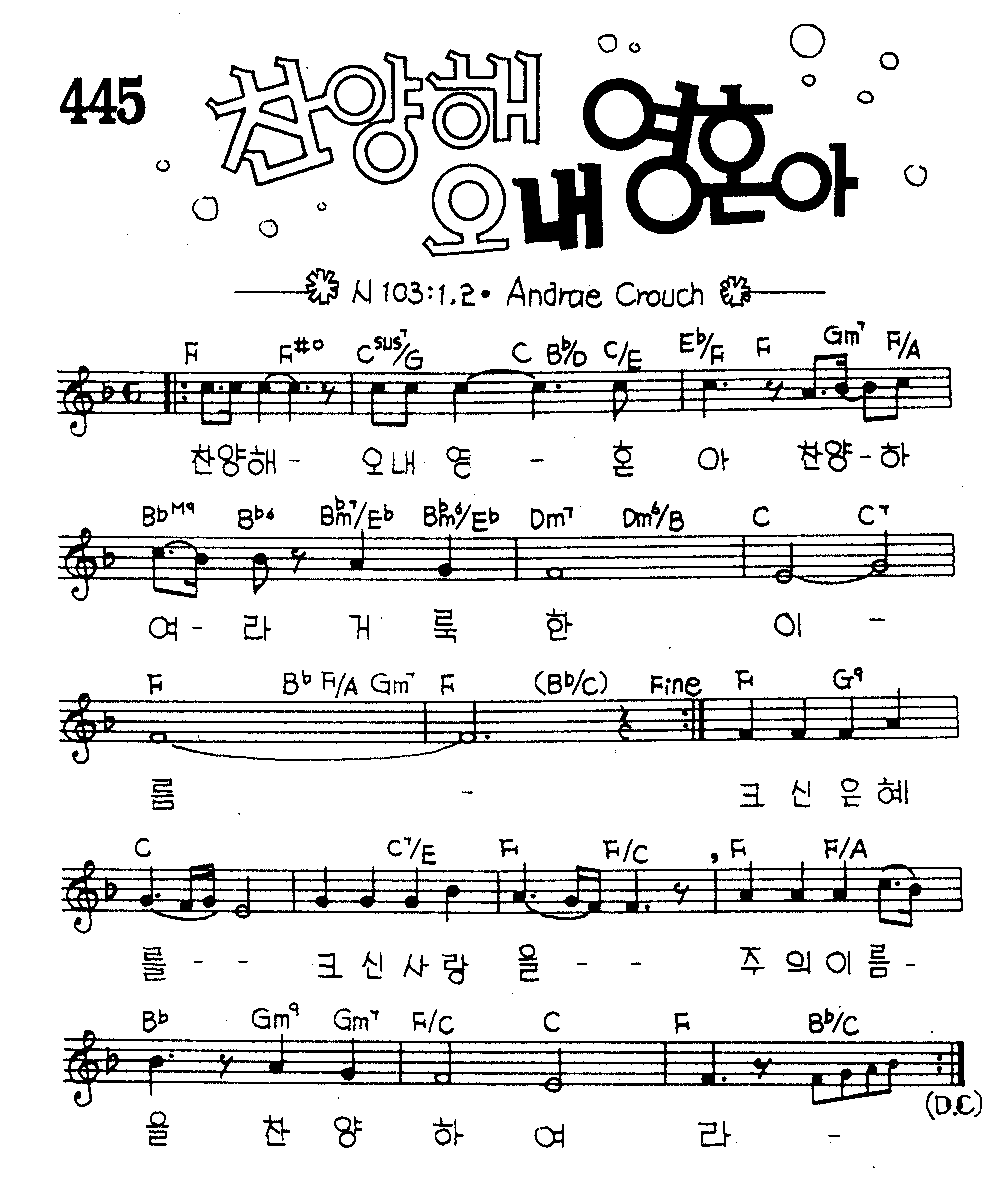 445
찬양해 영혼아
오 내
시 103:1.2• Andrae Crouch
F F#o Csus7/G C Bb/D C/E Eb/F F Gm7 F/A
찬양해 - 오내 영 - 혼 아 찬양-하
BbM9 Bb6 Bbm7/Eb Bbm6/Eb Dm7 Dm6/B C C7
여- 라 거 룩 한 이 -
F Bb F/A Gm7 F (Bb/C) Fine F G9
름 - 크 신 은 혜
C C7/E F F/C , F F/A
를 - - 크 신 사 랑 을 - - 주 의 이 름 -
Bb Gm9 Gm7 F/C C F Bb/C
(D.C)
을 찬 양 하 여 라 -